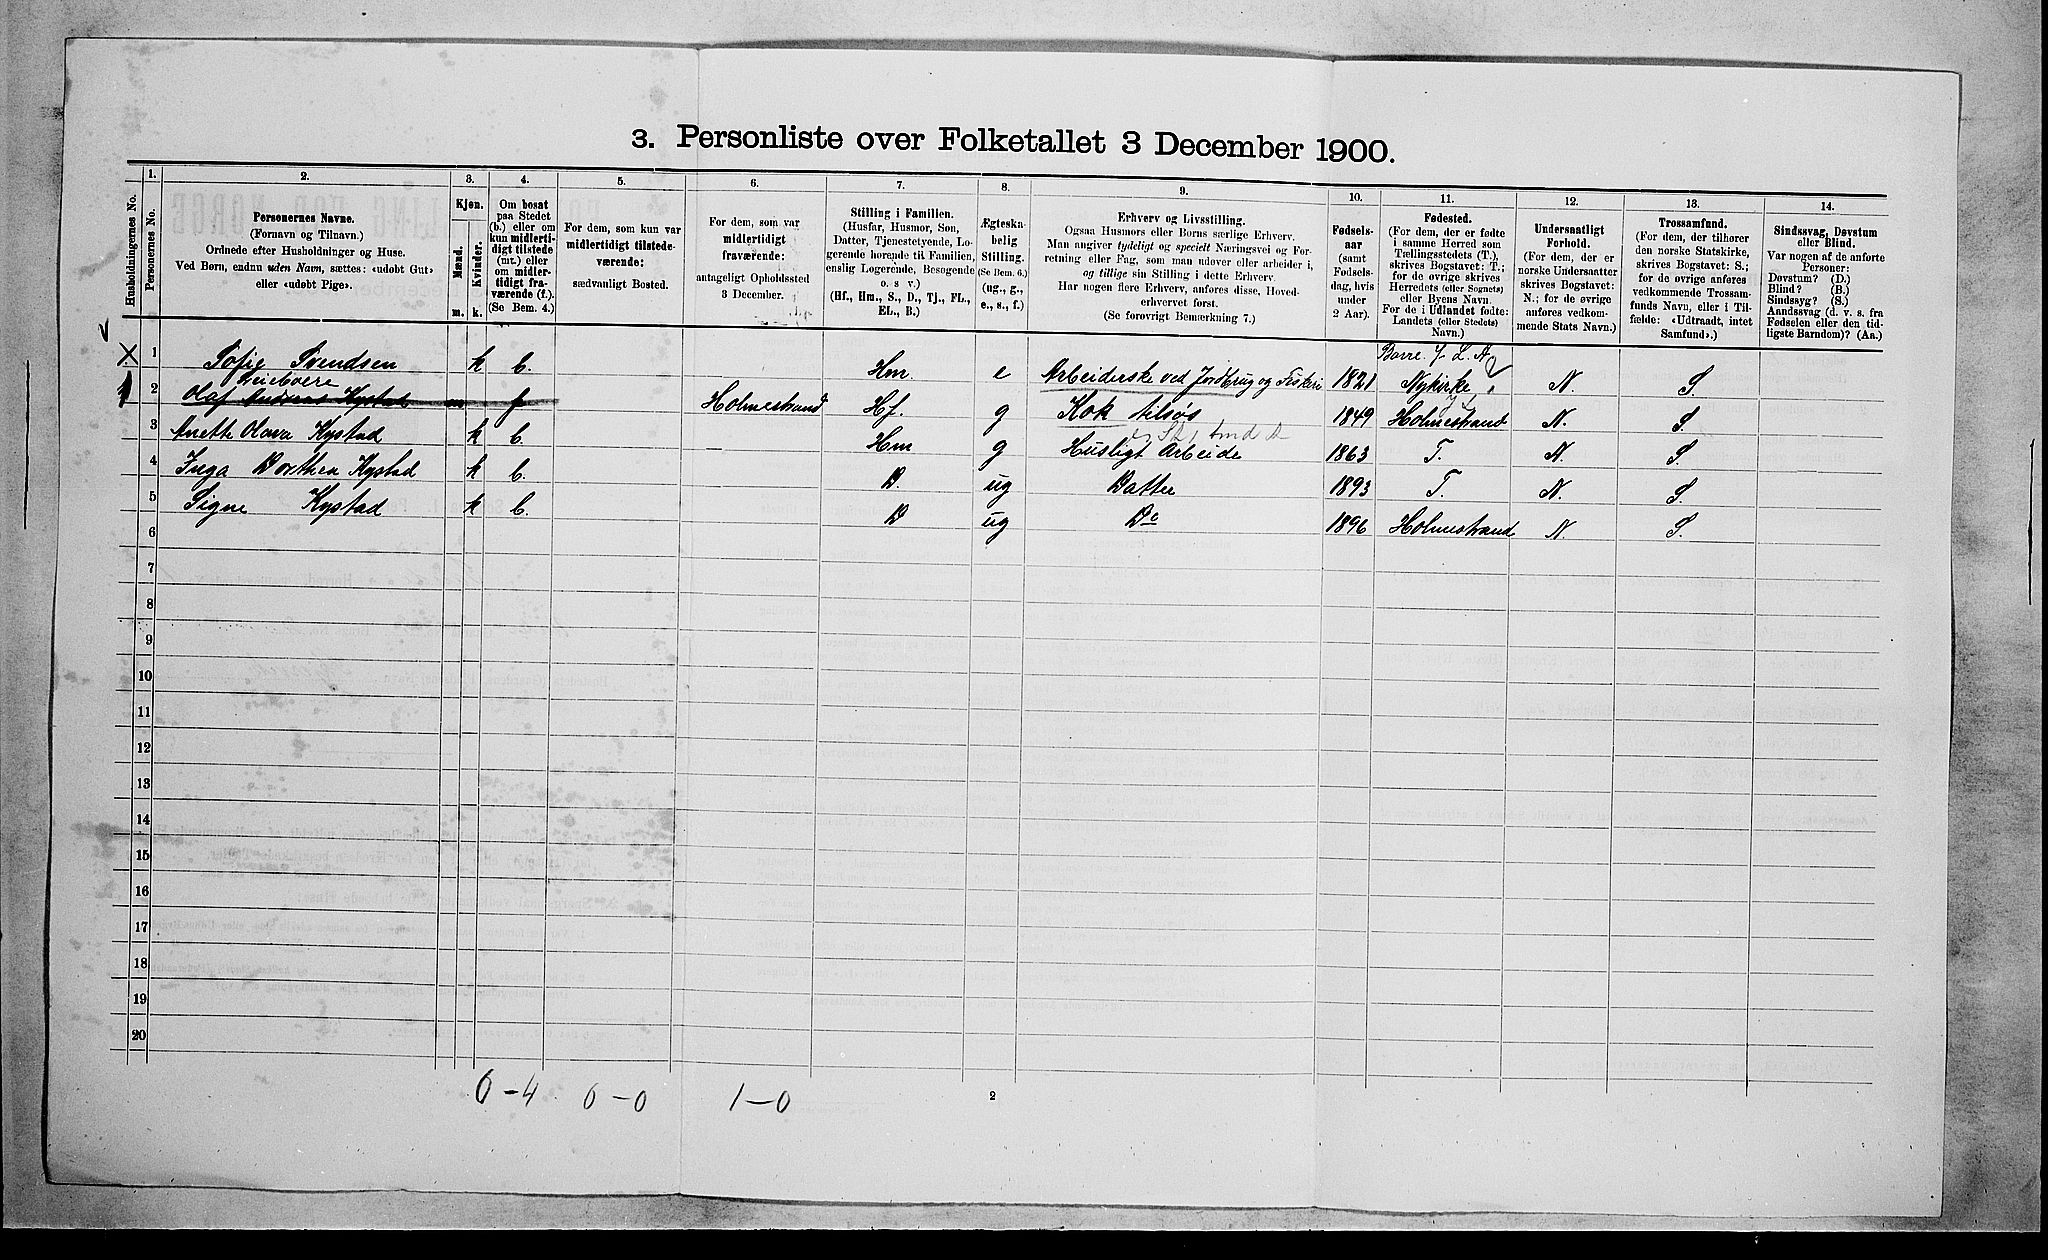 3. Personliste over Folketallet 3 December 1900.
Husholdningernes No.
1.
Personernes No.
2.
Personernes Navne.
(Fornavn og Tilnavn.)
Ordnede efter Husholdninger og Huse.
Ved Børn, endnu uden Navn, sættes: «udøbt Gut»
eller «udøbt Pige».
3.
Kjøn.
Mænd.
Kvinder.
m.
k.
4.
Om bosat
paa Stedet
(b.) eller om
kun midlerti-
digt tilstede
(mt.) eller
om midler-
tidigt fra-
værende (f.).
(Se Bem. 4.)
5.
For dem, som kun var
midlertidigt tilstede-
værende:
sædvanligt Bosted.
6.
For dem, som var
midlertidigt
fraværende:
antageligt Opholdssted
3 December.
7.
Stilling i Familien.
(Husfar, Husmor, Søn,
Datter, Tjenestetyende, Lo-
gerende hørende til Familien,
enslig Logerende, Besøgende
o. s v.)
(Hf., Hm., S., D., Tj., FL.,
EL., B.)
8.
Ægteska-
belig
Stilling.
(Se Bem. 6.)
(ug., g.,
e., s., f.)
9.
Erhverv og Livsstilling.
Ogsaa Husmors eller Børns særlige Erhverv.
Man angiver tydeligt og specielt Næringsvei og For-
retning eller Fag, som man udøver eller arbeider i,
og tillige sin Stilling i dette Erhverv.
Har nogen flere Erhverv, anføres disse, Hoved-
erhvervet først.
(Se forøvrigt Bemærkning 7.)
10.
Fødsels-
aar
(samt
Fødsels-
dag, hvis
under
2 Aar).
11.
Fødested.
(For dem, der er fødte
i samme Herred som
Tællingsstedets (T.),
skrives Bogstavet: T.;
for de øvrige skrives
Herredets (eller Sognets)
eller Byens Navn.
For de i Udlandet fødte:
Landets (eller Stedets)
Navn.)
12.
Undersaatligt
Forhold.
(For dem, der er
norske Undersaatter
skrives Bogstavet:
N.; for de øvrige
anføres vedkom-
mende Stats Navn.)
13.
Trossamfund.
(For dem, der tilhører
den norske Statskirke,
skrives Bogstavet: S.;
for de øvrige anføres
vedkommende Trossam-
funds Navn, eller i Til-
fælde: «Udtraadt, intet
Samfund».)
14.
Sindssvag, Døvstum
eller Blind.
Var nogen af de anførte
Personer:
Døvstum? (D.)
Blind? (B.)
Sindssyg? (S.)
Aandssvag (d. v. s. fra
Fødselen eller den tid-
ligste Barndom)? (Aa.)
Borre
X 1 Sofie Svendsen k b. Hm. e Arbeiderske ved Jordbrug og Fiskeri 1821 Nykirke N. S.
Leieboere
1 2 Olaf Andreas Kystad m f Holmestrand Hf. g Kok tilsøs 1849 Holmestrand N. S.
3 Anette Olava Kystad k b. Hm g Husligt Arbeide 1863 T. N. S.
4 Inga Dorthea Kystad k b. D. ug Datter 1893 T. N. S.
5 Signe Kystad k b. D ug Do 1896 Holmestrand N. S.
6
7
8
9
10
11
12
13
14
15
16
17
18
19
20
0-4 0-0 1-0
2